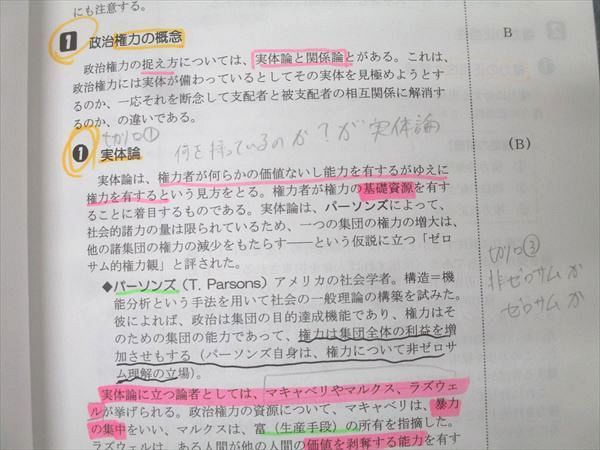 にも注意する。
1 政治権力の概念
B
政治権力の捉え方については、実体論と関係論とがある。これは、
政治権力には実体が備わっているとしてその実体を見極めようとす
るのか、一応それを断念して支配者と被支配者の相互関係に解消す
るのか、の違いである。
切り口①
何を持っているのか?が実体論
❶ 実体論
(B)
実体論は、権力者が何らかの価値ないし能力を有するがゆえに
権力を有するという見方をとる。権力者が権力の基礎資源を有す
ることに着目するものである。実体論は、パーソンズによって、
社会的諸力の量は限られているため、一つの集団の権力の増大は、
他の諸集団の権力の減少をもたらす――という仮説に立つ「ゼロ
サム的権力観」と評された。
切り口③
非ゼロサムか
ゼロサムか
◆パーソンズ(T. Parsons) アメリカの社会学者。構造=機
能分析という手法を用いて社会の一般理論の構築を試みた。
彼によれば、政治は集団の目的達成機能であり、権力はそ
のための集団の能力であって、権力は集団全体の利益を増
加させもする(パーソンズ自身は、権力について非ゼロサ
ム理解の立場)。
実体論に立つ論者としては、マキャベリやマルクス、ラズウェ
ルが挙げられる。政治権力の資源について、マキャベリは、暴力
の集中をいい、マルクスは、富(生産手段)の所有を指摘した。
ラズウェルは、ある人間が他の人間の価値を剥奪する能力を有す